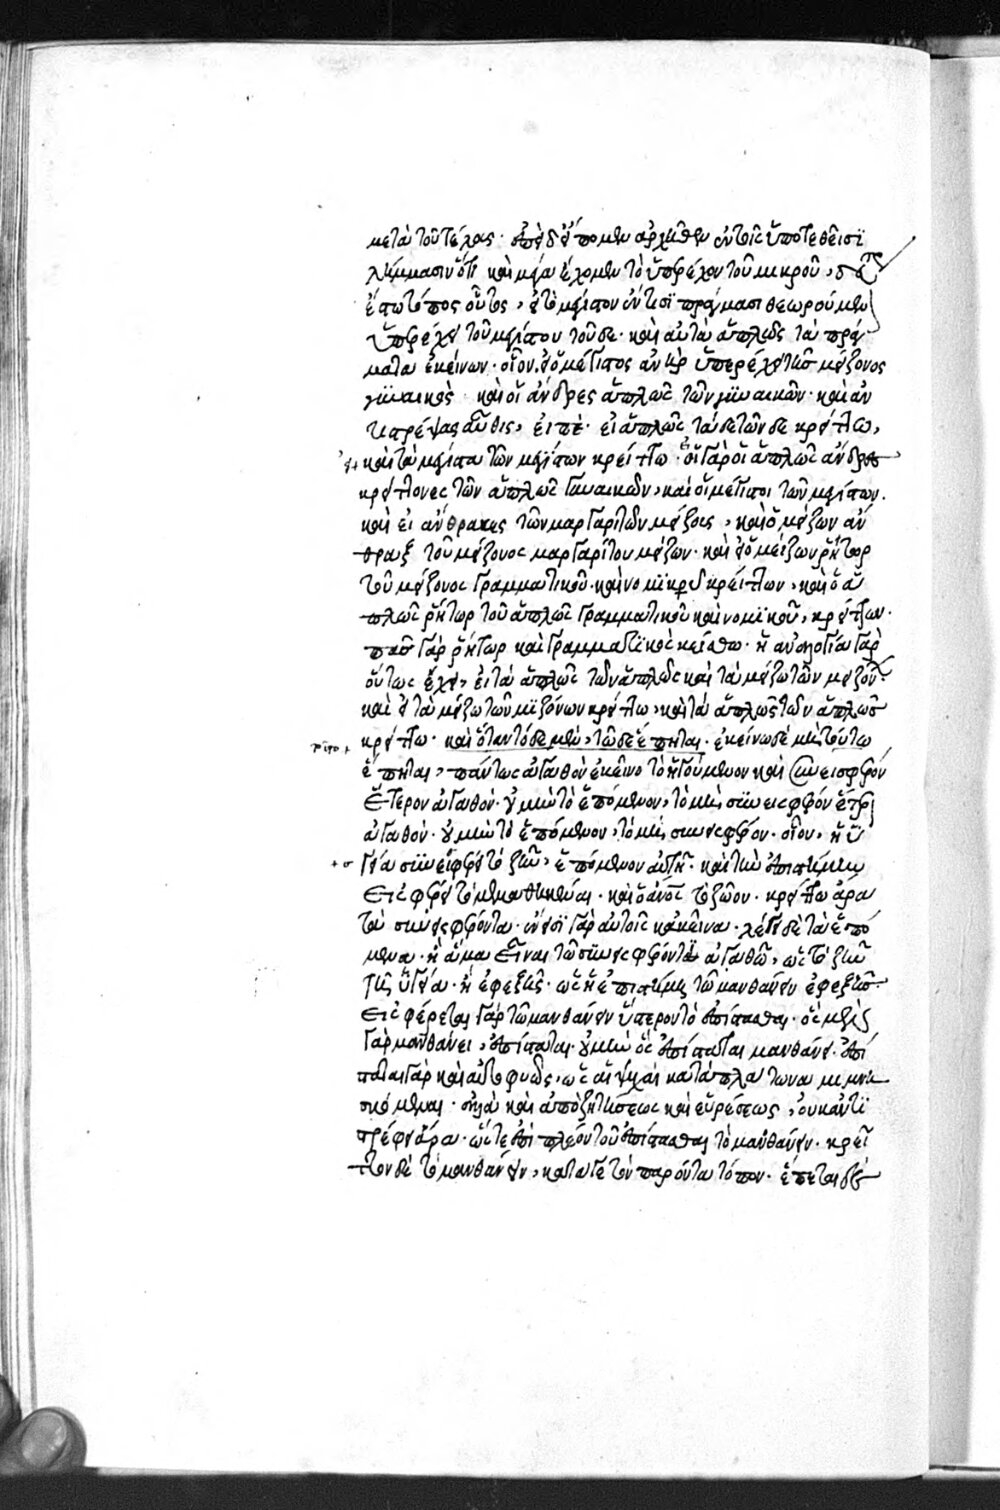 μετὰ τοῦ τέλους. ἐπεὶ δ' εἴπομεν ἀρχῆθεν ἐν τοῖς ὑποτεθεῖσι
λήμμασιν ὅτι καὶ μέγα λέγομεν τὸ ὑπερέχον τοῦ μικροῦ,
ἔστω τόπος οὗτος, εἰ τὸ μέγιστον ἔν τισι πράγμασι θεωρούμενον
ὑπερέχει τοῦ μεγίστου τοῦδε. καὶ αὐτὰ ἁπλῶς τὰ πράγ
ματα ἐκείνων. οἷον, εἰ ὁ μέγιστος ἀνὴρ ὑπερέχει τῆς μείζονος
γυναικὸς καὶ οἱ ἄνδρες ἁπλῶς τῶν γυναικῶν. καὶ ἀν
τιστρέψας αὖθις, εἰπὲ. εἰ ἁπλῶς τάδε τῶνδε κρείττω,
καὶ τὰ μέγιστα τῶν μεγίστων κρείττω. εἰ γὰρ οἱ ἁπλῶς ἄνδρες
κρείττονες τῶν ἁπλῶς γυναικῶν, καὶ οἱ μέγιστοι τῶν μεγίστων.
καὶ εἰ ἄνθρακες τῶν μαργαριτῶν μείζους, καὶ ὁ μείζων ἄν
θραξ τοῦ μείζονος μαργαρίτου μείζων. καὶ εἰ ὁ μείζων ῥήτωρ
τοῦ μείζονος γραμματικοῦ καὶ νομικοῦ κρείττων, καὶ ὁ ἁ
πλῶς ῥήτωρ τοῦ ἁπλῶς γραμματικοῦ καὶ νομικοῦ, κρείττων.
πᾶς γὰρ ῥήτωρ καὶ γραμματικὸς κείσθω. ἡ ἀναλογία γὰρ
οὕτως ἔχει, εἰ τὰ ἁπλῶς τῶν ἁπλῶς καὶ τὰ μείζω τῶν μειζόνων.
καὶ εἰ τὰ μείζω τῶν μειζόνων κρείττω, καὶ τὰ ἁπλῶς τῶν ἁπλῶς
κρείττω. καὶ ὅταν τόδε μὲν, τῶδε ἕπηται. ἐκείνω δὲ μὴ τούτω
ἕπηται, πάντως ἀγαθὸν ἐκεῖνο τὸ ἡγούμενον καὶ συνεισφέρον
ἕτερον ἀγαθόν. οὐ μὴν τὸ ἑπόμενον, τὸ μὴ συνεισφέρον ἕτερον
ἀγαθόν. οὐ μὴν τὸ ἑπόμενον, τὸ μὴ συνεισφέρον. οἷον, ἡ ὑ
γεία συνεισφέρει τὸ ζῆν, ἑπόμενον αὐτῇ. καὶ τὴν ἐπιστήμην
εἰσφέρει τὸ μεμαθηκέναι. καὶ ὁ ἄνος τὸ ζῶον. κρείττω ἄρα
τὰ συνεισφέροντα. ἔνεισι γὰρ αὐτοῖς κἀκεῖνα. λέγει δὲ τὰ ἑπό
μενα. ἢ ἅμα εἶναι τῶ συνεισφέροντι ἀγαθῶ, ὡς τὸ ζῆν
τῇ ὑγεία. ἢ ἐφεξῆς. ὡς ἡ ἐπιστήμη τῶ μανθάνειν ἐφεξῆς
εἰσφέρεται γὰρ τῶ μανθάνειν ὕστερον τὸ ἐπίστασθαι. ὃς μὲν
γὰρ μανθάνει, ἐπίσταται. οὐ μὴν ὃς ἐπίσταται μανθάνει. ἐπί
σταται γὰρ καὶ αὐτοφυῶς, ὡς αἱ ψυχαὶ κατὰ πλάτωνα μιμνη
σκόμεναι. ἀλλὰ καὶ ἀπὸ ζητήσεως καὶ εὑρέσεως, οὐκ ἀντι
στρέφει ἄρα. ὥστε ἐπὶ πλέον τοῦ ἐπίστασθαι τὸ μανθάνειν. κρεῖτ
τον δὲ τὸ μανθάνειν, κατά γε τὸν παρόντα τόπον. ἕπεται δὲ